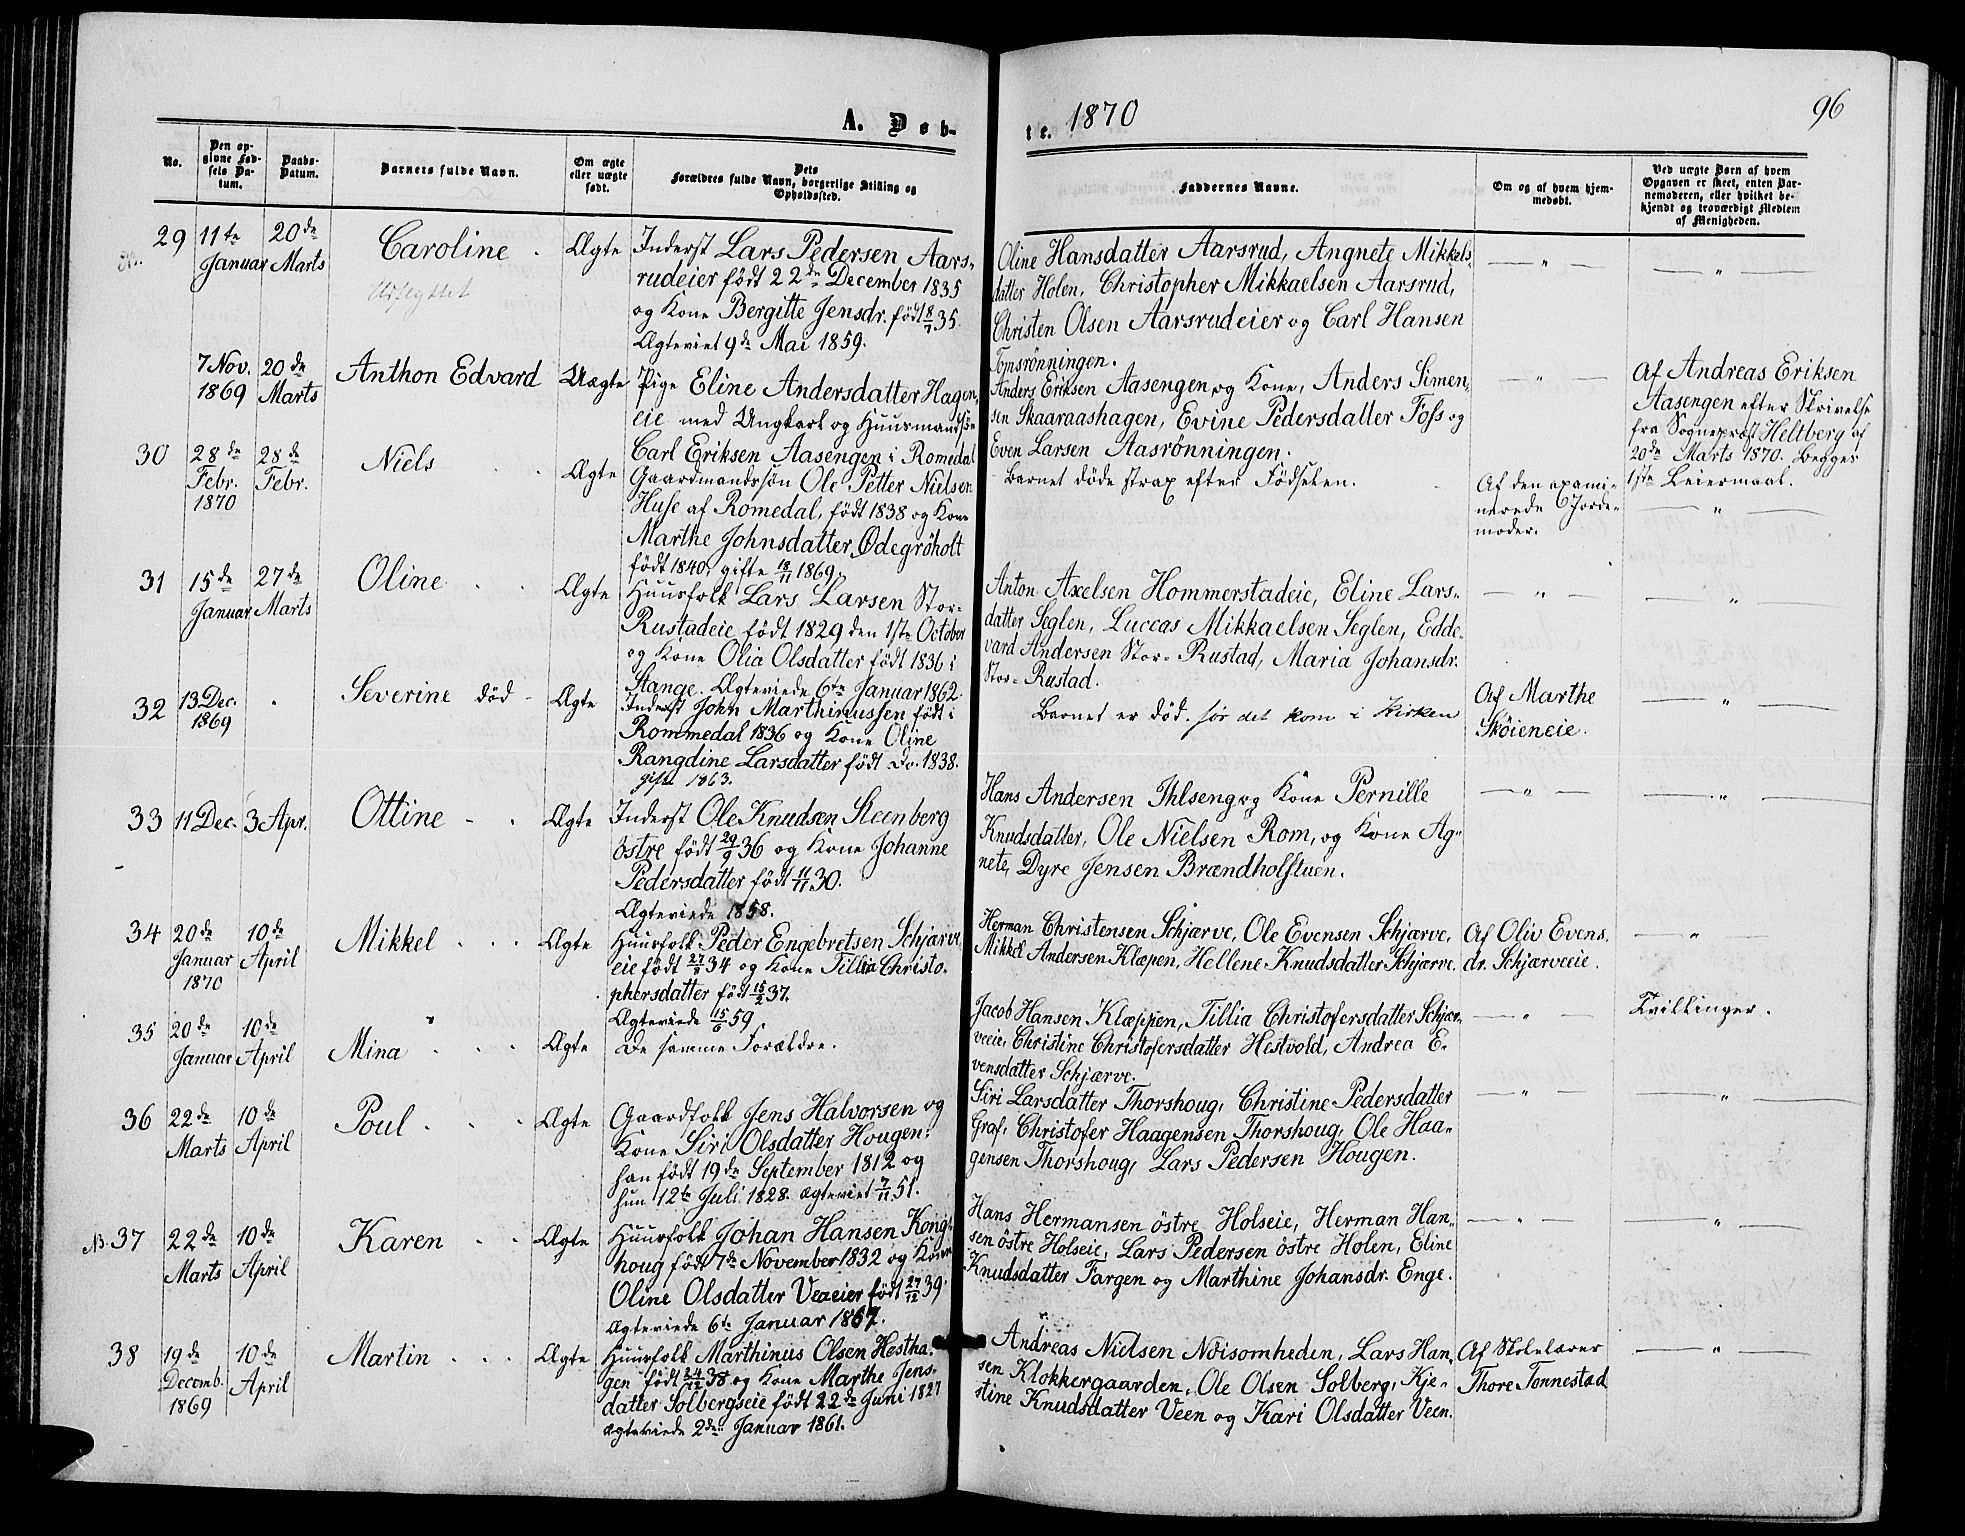 A. Døb-
te. 1870
96
No.
Den op-
givne Fød-
sels Da-
tum.
Daabs-
Datum.
Barnets fulde Navn.
Om ægte
eller uægte
født.
Dets
Forældres fulde Navn, borgerlige Stilling og
Opholdssted.
Faddernes Navne.
Om og af hvem hjem-
medøbt.
Ved uægte Børn af hvem
Opgaven er skeet, enten Bar-
nemoderen, eller hvilket be-
kjendt og troværdigt Medlem
af Menigheden.
29
11te
Januar
20de
Marts
Caroline
Udflyttet
Ægte
Inderst Lars Pedersen Aars-
rudeier født 22de December 1835
og Kone Bergitte Jensdr. født 8/7 35.
Ægteviet 9de Mai 1859.
Oline Hansdatter Aarsrud, Angnete Mikkels-
datter Holen, Christopher Mikkaelsen Aarsrud,
Christen Olsen Aarsrudeier og Carl Hansen
Tomsrønningen.
— " —
— " —
7 Nov.
1869
20de
Marts
Anthon Edvard
Uægte
Pige Eline Andersdatter Hagen,
eie med Ungkarl og Huusmandssøn
Carl Eriksen Aasengen i Romedal
Anders Eriksen Aasengen og Kone, Anders Simen-
sen Skaaraashagen, Evine Pedersdatter Foss og
Even Larsen Aasrønningen.
— " —
Af Andreas Eriksen
Aasengen efter Skrivelse
fra Sognepræst Heltberg af
20de Marts 1870. Begges
1ste Leiermaal.
30
28de
Febr.
1870
28de
Febr.
Niels
Ægte
Gaardmandssøn Ole Petter Nielsen
Huse af Romedal, født 1838 og Kone
Marthe Johnsdatter Ødegröholt
født 1840, gifte 18/11 1869.
Barnet døde strax efter Födselen.
Af den exami-
nerede Jorde-
moder.
— " —
31
15de
Januar
27de
Marts
Oline
Ægte
Huusfolk Lars Larsen Stor-
Rustadeie født 1829 den 1ste October
og Kone Olia Olsdatter født 1836 i
Stange. Ægteviede 6te Januar 1862.
Anton Axelsen Hommerstadeie, Eline Lars-
datter Seglen, Luccas Mikkaelsen Seglen, Edde-
vard Andersen Stor-Rustad, Maria Johansdr.
Stor-Rustad.
— " —
— " —
32
13 Dec.
1869
Severine død
Ægte
Inderst John Marthinussen født i
Rommedal 1836 og Kone Oline
Rangdine Larsdatter født Do. 1838.
gifte 1863.
Barnet er død. før det kom i Kirken
Af Marthe
Skøieneie.
— " —
33
11 Dec.
3 Apr.
Ottine
Ægte
Inderst Ole Knudsen Steenberg
østre født 29/9 36 og Kone Johanne
Pedersdatter født 11/11 30.
Ægteviede 1858.
Hans Andersen Ihlseng og Kone Pernille
Knudsdatter, Ole Nielsen Rom, og Kone Ag-
nete, Dyre Jensen Brændholstuen.
— " —
— " —
34
20de
Januar
1870
10de
April
Mikkel
Ægte
Huusfolk Peder Engebretsen Schjærve
eie født 27/8 34 og Kone Tillia Christo-
phersdatter født 15/2 37.
Ægteviede 15/6 59
Herman Christensen Schjærve, Ole Evensen Schjærve,
Mikkel Andersen Klæpen, Hellene Knudsdatter Schjærve.
Af Oliv Evens-
dr. Schjærveeie.
— " —
35
20de
Januar
10de
April
Mina
Ægte
De samme Forældre.
Jacob Hansen Klæppen, Tillia Christofersdatter Schjær-
veeie, Christine Christofersdatter Hestvold, Andrea E-
vensdatter Schjærve.
— " —
Tvillinger.
36
22de
Marts
10de
April
Poul
Ægte
Gaardfolk Jens Halvorsen og
Kone Siri Olsdatter Hougen:
han født 19de September 1812 og
hun 12te Juli 1828. Ægteviet 7/11 51.
Siri Larsdatter Thorshoug, Christine Pedersdatter
Graf, Christofer Haagensen Thorshoug, Ole Haa-
gensen Thorshoug, Lars Pedersen Hougen.
— " —
— " —
NB. 37
22de
Marts
10de
April
Karen
Ægte
Huusfolk Johan Hansen Kong-
houg født 7de November 1832 og Kone
Oline Olsdatter Veneier født 27/12 39.
Ægteviede 6te Januar 1867.
Hans Hermansen östre Holseie, Herman Han-
sen östre Holseie, Lars Pedersen östre Holen, Eline
Knudsdatter Fargen og Marthine Johansdr. Enge.
— " —
— " —
38
19de
Decemb.
1869
10de
April
Martin
Ægte
Huusfolk Marthinus Olsen Hestha-
gen født 24/12 38 og Kone Marthe Jens-
datter Solbergseie født 22de Juni 1827
Ægteviede 2den Januar 1861.
Andreas Nielsen Nöisomheden, Lars Han-
sen Klokkergaarden, Ole Olsen Solberg, Kje-
stine Knudsdatter Veen og Kari Olsdatter Veen.
Af Skolelærer
Thore Tonnestad
— " —